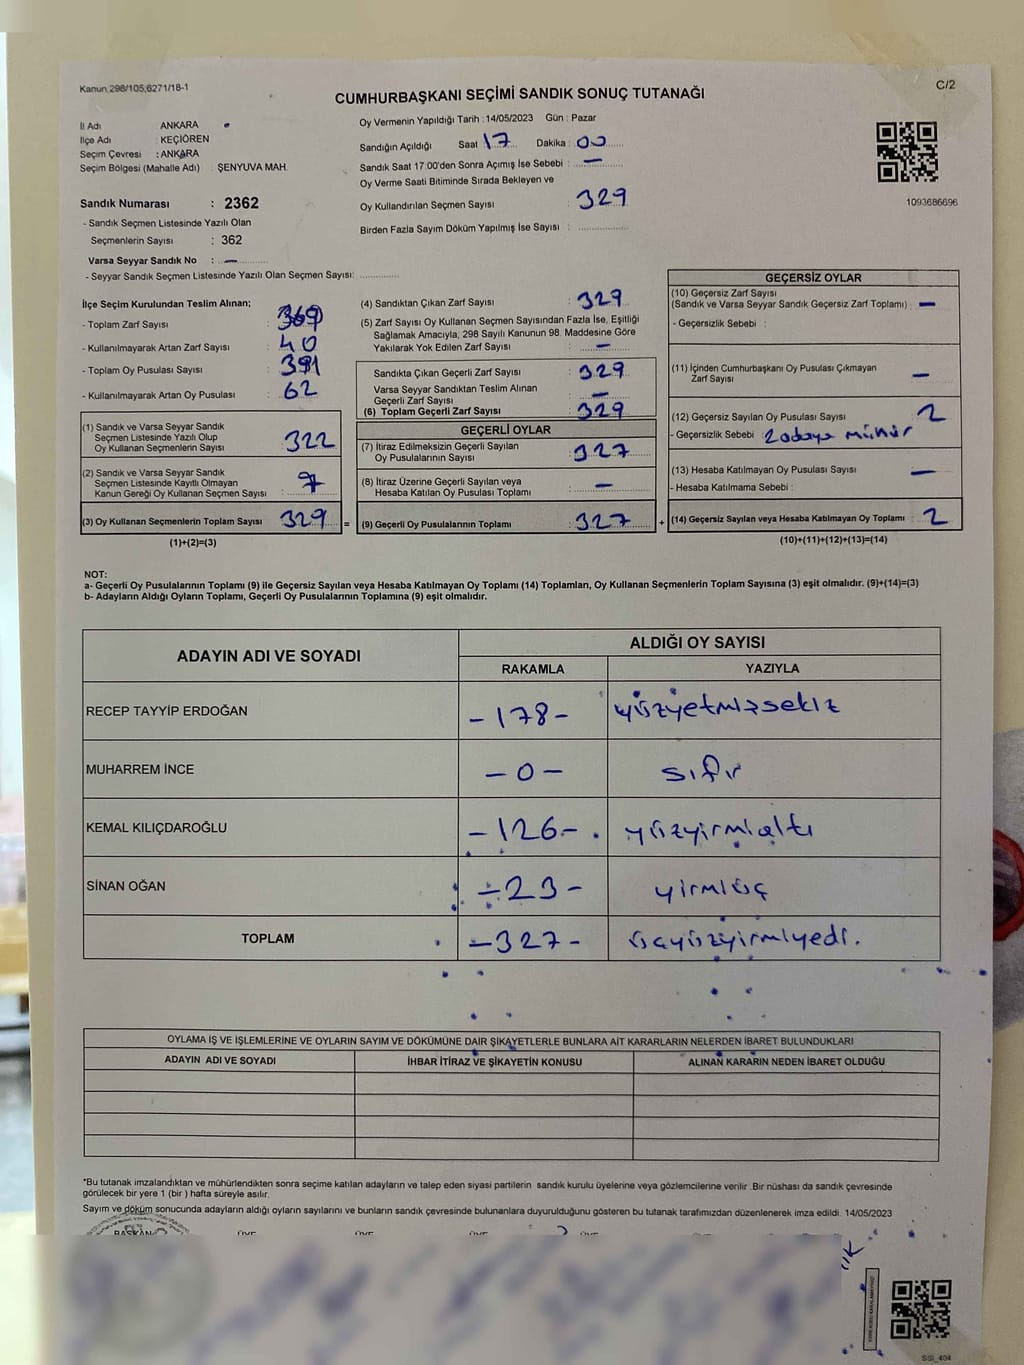 Kanun,298/105,6271/18-1
C/2
CUMHURBAŞKANI SEÇİMİ SANDIK SONUÇ TUTANAĞI
İl Adı ANKARA
İlçe Adı : KEÇİÖREN
Seçim Çevresi : ANKARA
Seçim Bölgesi (Mahalle Adı) : ŞENYUVA MAH.
Sandık Numarası : 2362
- Sandık Seçmen Listesinde Yazılı Olan
Seçmenlerin Sayısı : 362
Varsa Seyyar Sandık No : —
- Seyyar Sandık Seçmen Listesinde Yazılı Olan Seçmen Sayısı: ............
Oy Vermenin Yapıldığı Tarih :14/05/2023 Gün : Pazar
Sandığın Açıldığı Saat 17 Dakika : 00
Sandık Saat 17:00'den Sonra Açımış İse Sebebi : —
Oy Verme Saati Bitiminde Sırada Bekleyen ve
Oy Kullandırılan Seçmen Sayısı : 329
Birden Fazla Sayım Döküm Yapılmış İse Sayısı : ............
1093686696
İlçe Seçim Kurulundan Teslim Alınan;
- Toplam Zarf Sayısı : 369
- Kullanılmayarak Artan Zarf Sayısı : 40
- Toplam Oy Pusulası Sayısı : 391
- Kullanılmayarak Artan Oy Pusulası : 62
(1) Sandık ve Varsa Seyyar Sandık
Seçmen Listesinde Yazılı Olup
Oy Kullanan Seçmenlerin Sayısı : 322
(2) Sandık ve Varsa Seyyar Sandık
Seçmen Listesinde Kayıtlı Olmayan
Kanun Gereği Oy Kullanan Seçmen Sayısı : 7
(3) Oy Kullanan Seçmenlerin Toplam Sayısı : 329 =
(1)+(2)=(3)
(4) Sandıktan Çıkan Zarf Sayısı : 329
(5) Zarf Sayısı Oy Kullanan Seçmen Sayısından Fazla İse, Eşitliği
Sağlamak Amacıyla, 298 Sayılı Kanunun 98. Maddesine Göre
Yakılarak Yok Edilen Zarf Sayısı : —
Sandıkta Çıkan Geçerli Zarf Sayısı : 329
Varsa Seyyar Sandıktan Teslim Alınan
Geçerli Zarf Sayısı : —
(6) Toplam Geçerli Zarf Sayısı : 329
GEÇERLİ OYLAR
(7) İtiraz Edilmeksizin Geçerli Sayılan
Oy Pusulalarının Sayısı : 327
(8) İtiraz Üzerine Geçerli Sayılan veya
Hesaba Katılan Oy Pusulası Toplamı : —
(9) Geçerli Oy Pusulalarının Toplamı : 327 +
GEÇERSİZ OYLAR
(10) Geçersiz Zarf Sayısı
(Sandık ve Varsa Seyyar Sandık Geçersiz Zarf Toplamı) : —
- Geçersizlik Sebebi :
(11) İçinden Cumhurbaşkanı Oy Pusulası Çıkmayan
Zarf Sayısı —
(12) Geçersiz Sayılan Oy Pusulası Sayısı 2
- Geçersizlik Sebebi : 2 adaya mühür
(13) Hesaba Katılmayan Oy Pusulası Sayısı —
- Hesaba Katılmama Sebebi :
(14) Geçersiz Sayılan veya Hesaba Katılmayan Oy Toplamı : 2
(10)+(11)+(12)+(13)=(14)
NOT:
a- Geçerli Oy Pusulalarının Toplamı (9) ile Geçersiz Sayılan veya Hesaba Katılmayan Oy Toplamı (14) Toplamları, Oy Kullanan Seçmenlerin Toplam Sayısına (3) eşit olmalıdır. (9)+(14)=(3)
b- Adayların Aldığı Oyların Toplamı, Geçerli Oy Pusulalarının Toplamına (9) eşit olmalıdır.
ADAYIN ADI VE SOYADI ALDIĞI OY SAYISI
RAKAMLA YAZIYLA
RECEP TAYYİP ERDOĞAN -178- yüzyetmişsekiz
MUHARREM İNCE -0- sıfır
KEMAL KILIÇDAROĞLU -126- yüzyirmialtı
SİNAN OĞAN -23- yirmiüç
TOPLAM -327- üçyüzyirmiyedi.
OYLAMA İŞ VE İŞLEMLERİNE VE OYLARIN SAYIM VE DÖKÜMÜNE DAİR ŞİKAYETLERLE BUNLARA AİT KARARLARIN NELERDEN İBARET BULUNDUKLARI
ADAYIN ADI VE SOYADI İHBAR İTİRAZ VE ŞİKAYETİN KONUSU ALINAN KARARIN NEDEN İBARET OLDUĞU
*Bu tutanak imzalandıktan ve mühürlendikten sonra seçime katılan adayların ve talep eden siyasi partilerin sandık kurulu üyelerine veya gözlemcilerine verilir .Bir nüshası da sandık çevresinde
görülecek bir yere 1 (bir ) hafta süreyle asılır.
Sayım ve döküm sonucunda adayların aldığı oyların sayılarını ve bunların sandık çevresinde bulunanlara duyurulduğunu gösteren bu tutanak tarafımızdan düzenlenerek imza edildi. 14/05/2023
BAŞKAN ÜYE ÜYE ÜYE ÜYE
SSI_404